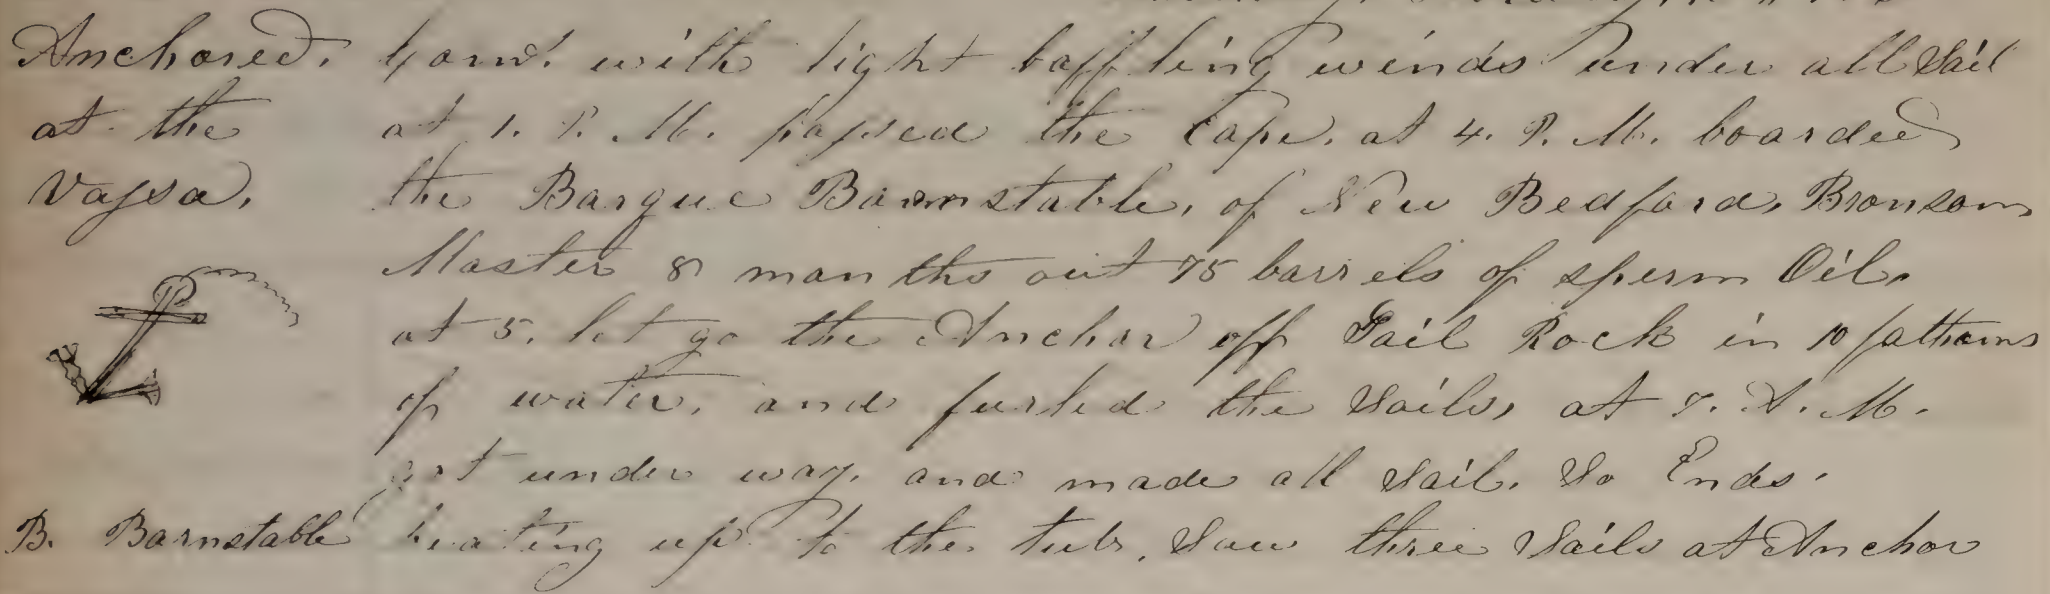 Anchored. Comd. with light baffling winds under all Sail
at the at 1. P. M. passed the Cape. at 4. P. M. boarded
Vassa. the Barque Barnstable, of New Bedford, Bronson
Master 8 months out 75 barrels of sperm Oil.
at 5. let go the Anchor off Sail Rock in 10 fathoms
of water, and furled the Sails, at 7. A. M.
got under way. and made all Sail. So Ends.
B. Barnstable beating up to the tub. Saw three Sails at Anchor